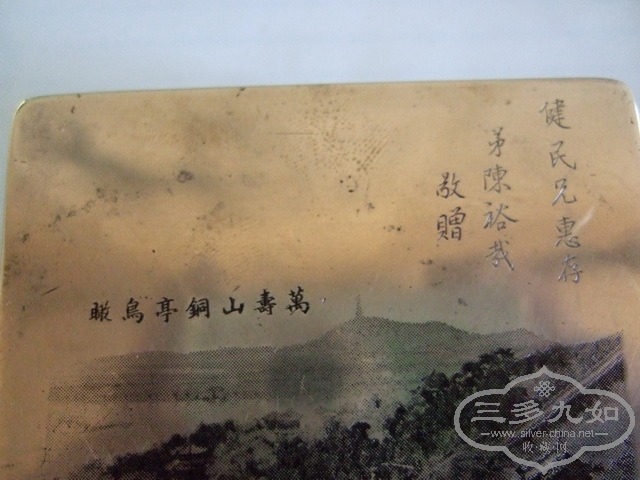 健民兄惠存
弟陳裕哉
敬贈
萬壽山銅亭鳥瞰
三多九如
www.silver-china.net
收·藏·网